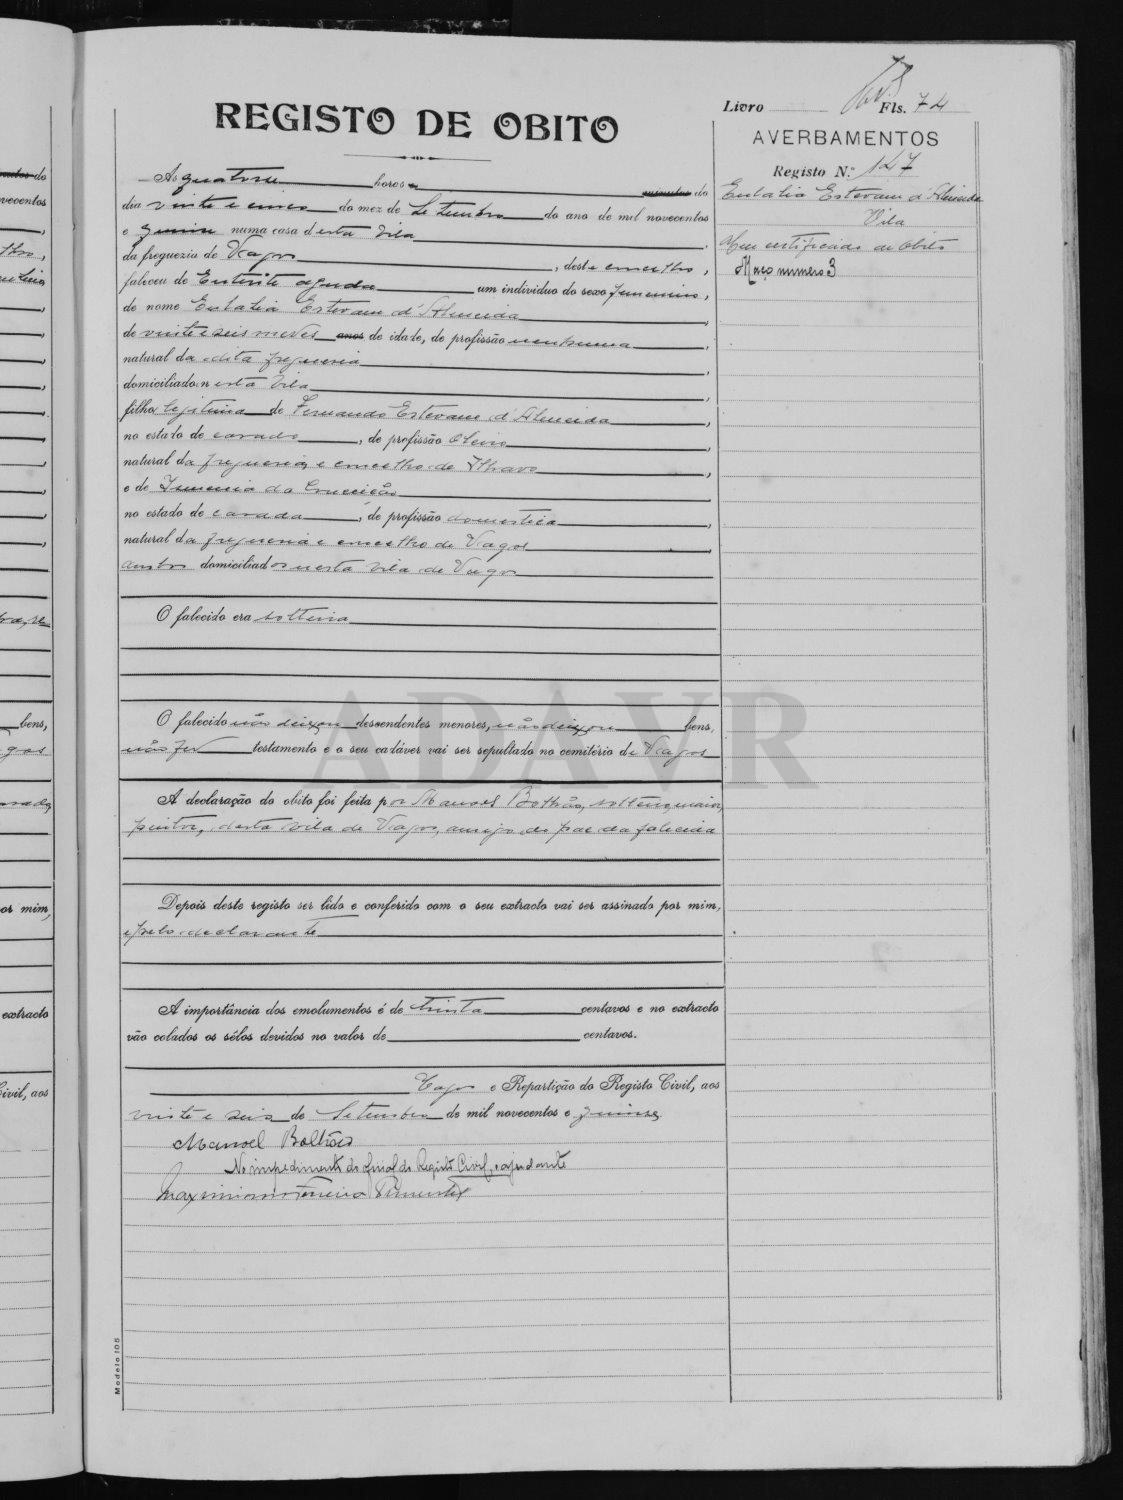 Livro Fls. 74
REGISTO DE OBITO
AVERBAMENTOS
Registo N.º 147
Eulalia Estevam d'Almeida
Vila
Um certificado de obito
Maço numero 3
As quatorze horas e minutos do
dia vinte e cinco do mez de Setembro do ano de mil novecentos
e quinze numa casa desta vila
da freguezia de Vagos, deste concelho,
faleceu de Enterite aguda um individuo do sexo femenino,
de nome Eulalia Estevam d'Almeida
de vinte e seis mezes anos de idade, de profissão nenhuma,
natural da dita freguesia,
domiciliado nesta vila,
filha legitima de Fernando Estevam d'Almeida,
no estado de casado, de profissão Oleiro,
natural da freguesia e concelho de Ilhavo,
e de da Conceição
no estado de casada, de profissão domestica,
natural da freguesia e concelho de Vagos,
ambos domiciliados nesta vila de Vagos
O falecido era solteira
O falecido não deixou descendentes menores, não deixou bens,
não fez testamento e o seu cadáver vai ser sepultado no cemitério de Vagos
A declaração do obito foi feita por Manoel solteiro, maior,
pintor, desta vila de Vagos, amigo do pae da falecida
Depois deste registo ser lido e conferido com o seu extracto vai ser assinado por mim,
e pelo declarante
A importância dos emolumentos é de trinta centavos e no extracto
vão colados os sêlos devidos no valor de centavos.
Vagos e Repartição do Registo Civil, aos
vinte e seis de Setembro de mil novecentos e quinze
Manoel
No impedimento do oficial do Registo Civil, o ajudante
Modelo 105
ADAVR
do
novecentos
bens,
por mim,
extracto
Civil, aos